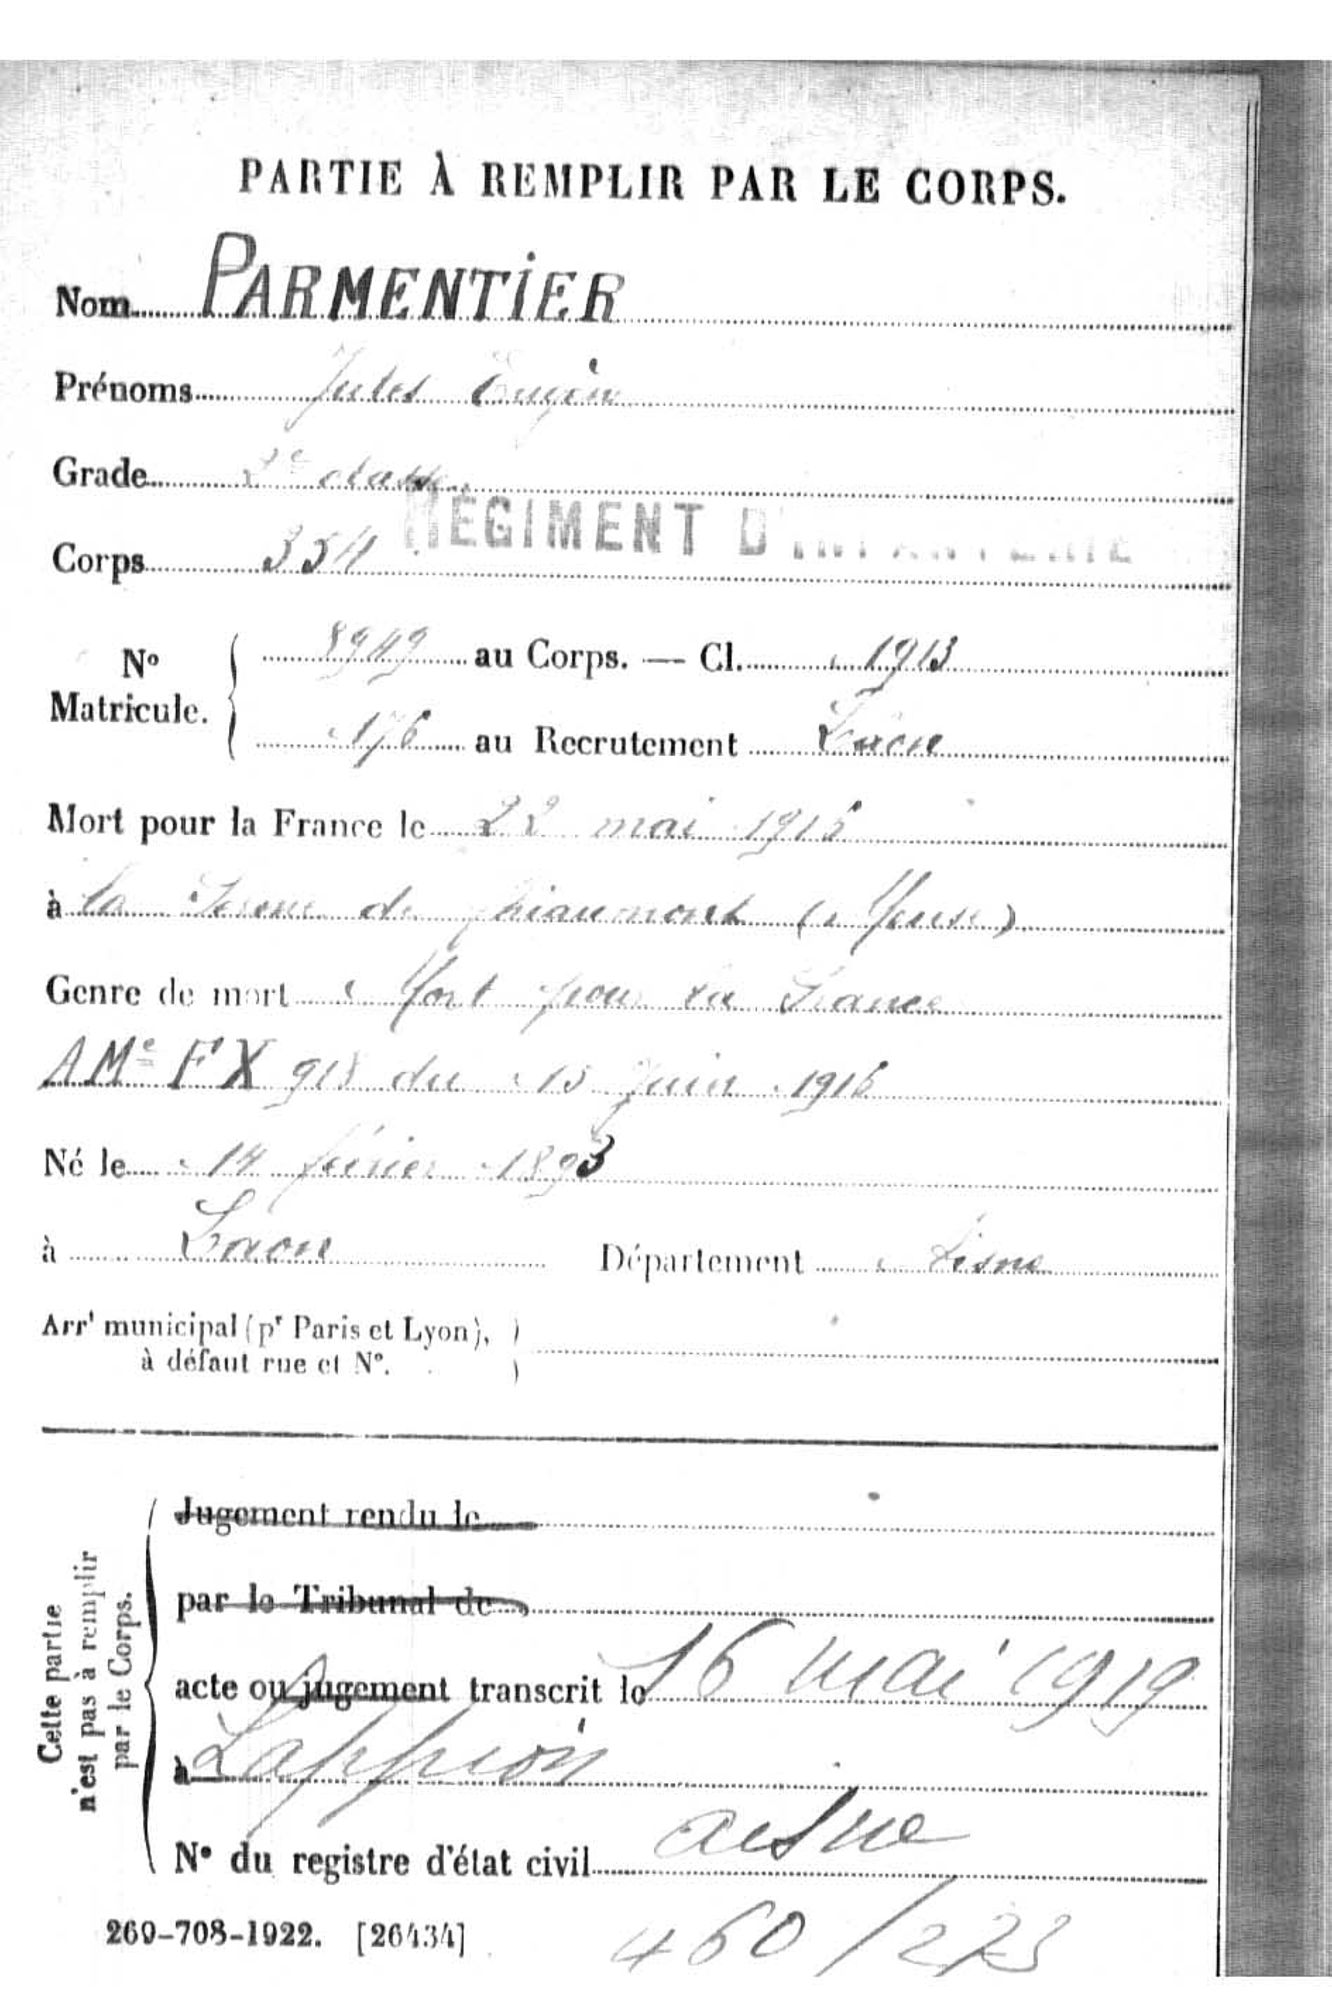 PARTIE À REMPLIR PAR LE CORPS.
Nom PARMENTIER
Prénoms Jules Eugène
Grade 2e classe
Corps 354 RÉGIMENT D'INFANTERIE
No Matricule. 8949 au Corps. — Cl. 1913
176 au Recrutement Laon
Mort pour la France le 22 mai 1916
à la Ferme de Thiaumont (Meuse)
Genre de mort Mort pour la France
AMe FX 918 du 15 Juin 1916
Né le 14 février 1893
à Laon Département Aisne
Arrt municipal (pr Paris et Lyon),
à défaut rue et No.
Cette partie
n'est pas à remplir
par le Corps.
Jugement rendu le
par le Tribunal de
acte ou jugement transcrit le 16 mai 1919
à Lappion
aisne
No du registre d'état civil
269-708-1922. [26434]
460/223